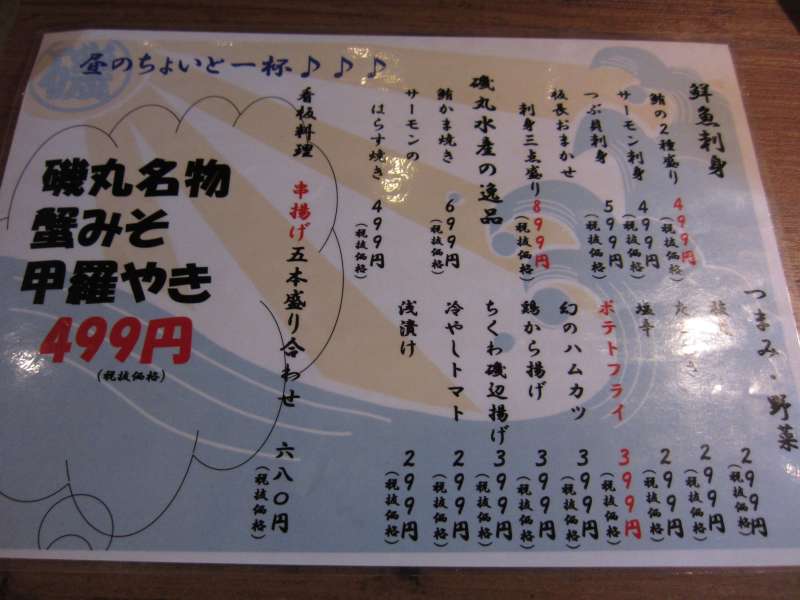 昼のちょいと一杯♪♪♪
鮮魚刺身
鮪の2種盛り 499円
(税抜価格)
サーモン刺身 499円
(税抜価格)
つぶ貝刺身 599円
(税抜価格)
板長おまかせ
刺身三点盛り 899円
(税抜価格)
磯丸水産の逸品
鮪かま焼き 699円
(税抜価格)
サーモンの
はらす焼き 499円
(税抜価格)
看板料理
串揚げ五本盛り合わせ 六八〇円
(税抜価格)
つまみ・野菜
299円
(税抜価格)
299円
(税抜価格)
塩辛 299円
(税抜価格)
ポテトフライ 399円
(税抜価格)
幻のハムカツ 399円
(税抜価格)
鶏から揚げ 399円
(税抜価格)
ちくわ磯辺揚げ 399円
(税抜価格)
冷やしトマト 299円
(税抜価格)
浅漬け 299円
(税抜価格)
磯丸名物
蟹みそ
甲羅やき
499円
(税抜価格)